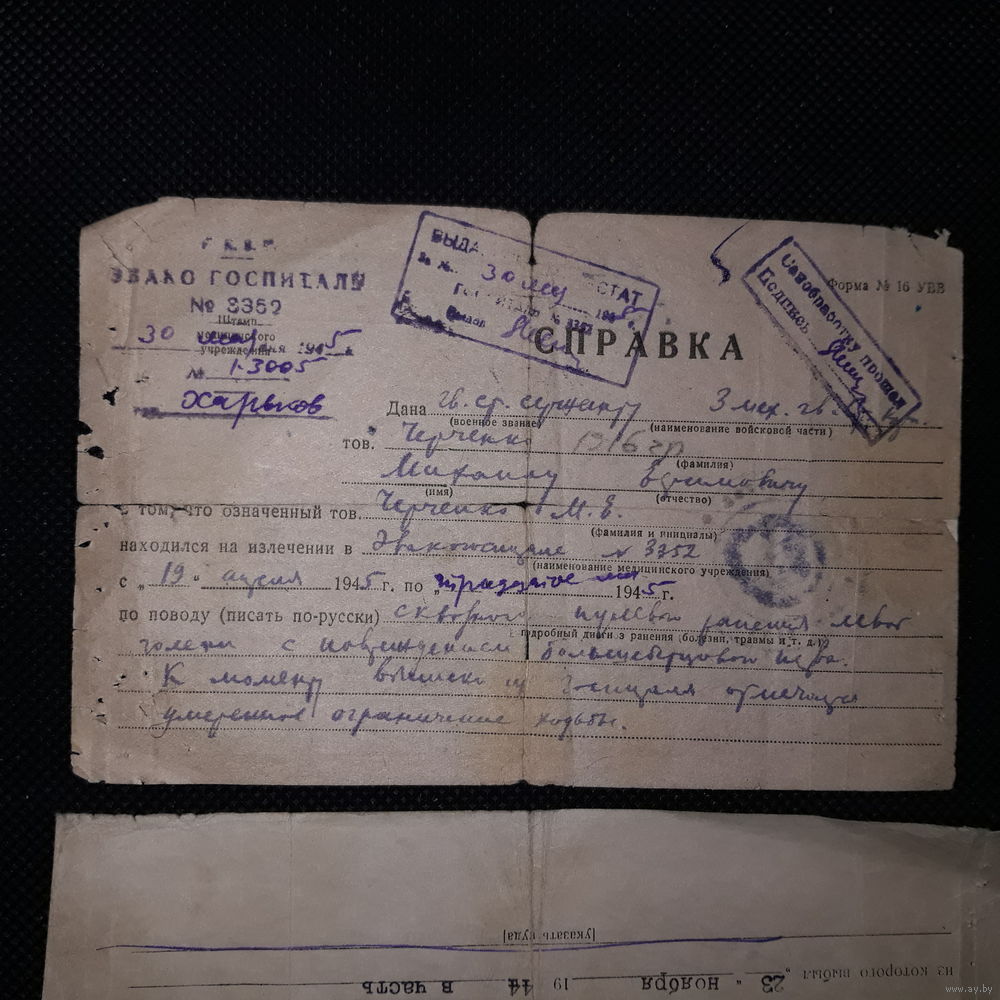 ЭВАКО ГОСПИТАЛЬ
№ 3352
Штамп
медицинского
учреждения
30 1945
№ 1-3005
Харьков
30
ГОСПИТАЛЬ №
Выдал
Санобработку прошел
Подпись
Форма № 16 УВВ
СПРАВКА
Дана гв. ст. сержанту 3 мех. гв.
(военное звание) (наименование войсковой части)
тов. Черченко 1916 гр
(фамилия)
Михаилу Ефимовичу
(имя) (отчество)
в том, что означенный тов. Черченко М. Е.
(фамилия и инициалы)
находился на излечении в Эвакогоспитале № 3352
(наименование медицинского учреждения)
с „19“ апреля 1945 г. по „тридцатое мая 1945 г.
по поводу (писать по-русски) сквозного пулевого ранения левой
подробный диагноз ранения (болезни, травмы и т. д.)
голени с повреждением большеберцового нерва.
К моменту выписки из госпиталя отмечается
умеренное ограничение ходьбы.
[указать куда]
из которого выбыл „23“ ноября 1944 в часть
www.ay.by